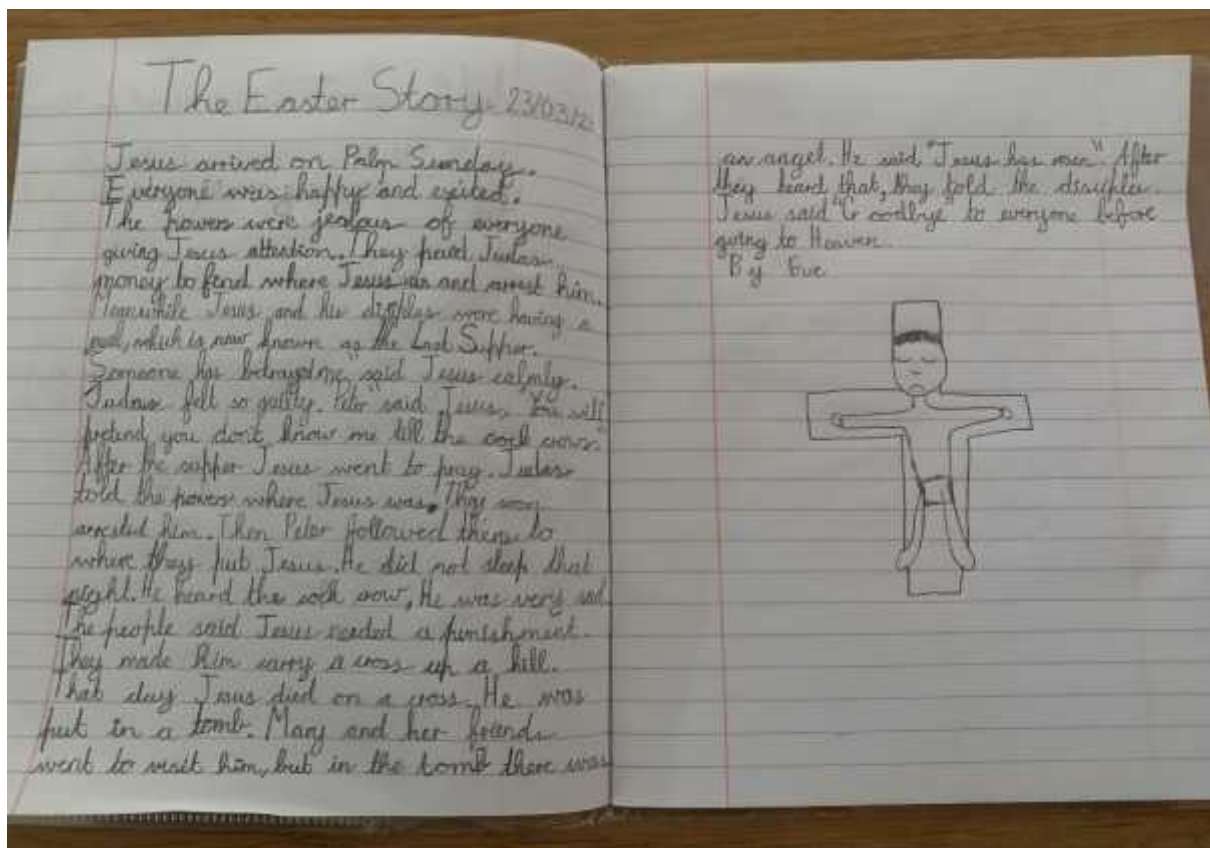 The Easter Story 23/03/2
Jesus arrived on Palm Sunday.
Everyone was happy and exited.
The powers were jealous of everyone
giving Jesus attention. They paid Judas
money to find where Jesus is and arrest him.
Meanwhile Jesus and his disiples were having a
meal, which is now known as the Last Supper.
"Someone has betrayed me" said Jesus calmly.
Judas felt so guilty. Peter said Jesus, You will
pretend you don't know me till the cock crows.
After the supper Jesus went to pray. Judas
told the powers where Jesus was. They
arrested him. Then Peter followed them to
where they put Jesus. He did not sleep that
night. He heard the cock crow, He was very sad.
The people said Jesus needed a punishment.
They made him carry a cross up a hill.
That day Jesus died on a cross. He was
put in a tomb. Mary and her friends
went to visit him, but in the tomb there was
an angel. He said "Jesus has risen". After
they heard that, they told the disciples.
Jesus said "Goodbye" to everyone before
going to Heaven.
By Eve